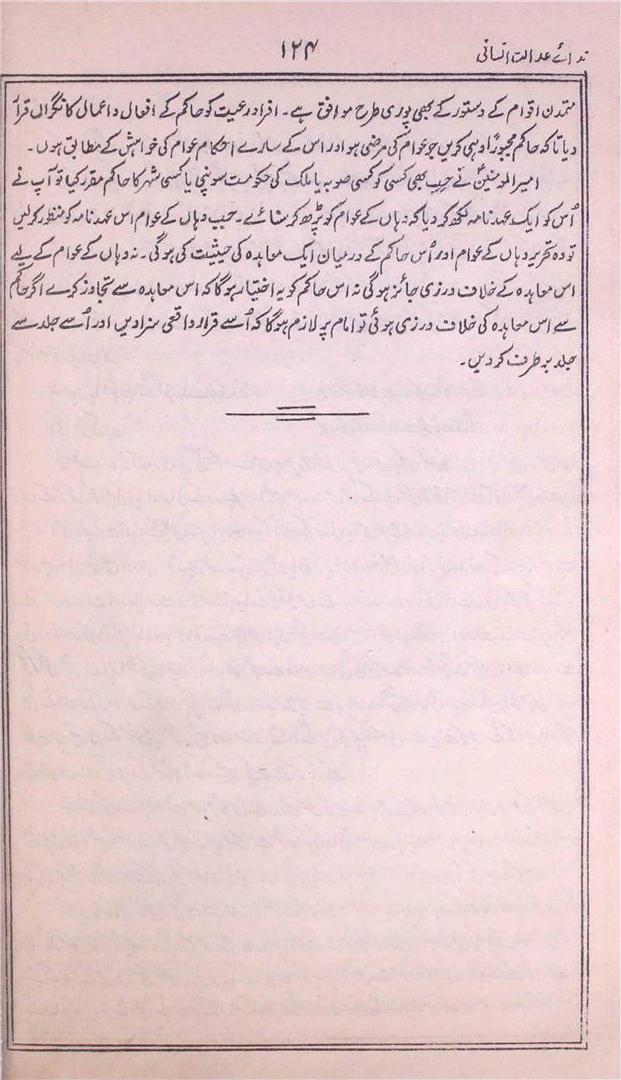 ندائے عدالت انسانی
۱۲۴
متمدن اقوام کے دستور کے بھی پوری طرح موافق ہے۔ افراد رعیت کو حاکم کے افعال و اعمال کا نگراں قرار
دیا تاکہ حاکم مجبوراً وہی کریں جو عوام کی مرضی ہو اور اس کے سارے احکام عوام کی خواہش کے مطابق ہوں۔
امیر المومنینؑ نے جب بھی کسی کو کسی صوبہ یا ملک کی حکومت سونپی یا کسی شہر کا حاکم مقرر کیا تو آپ نے
اُس کو ایک عہد نامہ لکھ کر دیا کہ وہاں کے عوام کو پڑھ کر سنائے۔ جب وہاں کے عوام اس عہد نامہ کو منظور کر لیں
تو وہ تحریر وہاں کے عوام اور اُس حاکم کے درمیان ایک معاہدہ کی حیثیت کی ہو گی۔ نہ وہاں کے عوام کے لیے
اس معاہدہ کے خلاف ورزی جائز ہو گی نہ اس حاکم کو یہ اختیار ہو گا کہ اس معاہدہ سے تجاوز کرے اگر حاکم
سے اس معاہدہ کی خلاف ورزی ہوئی تو امام پر لازم ہو گا کہ اُسے قرار واقعی سزا دیں اور اُسے جلد سے
جلد برطرف کر دیں۔